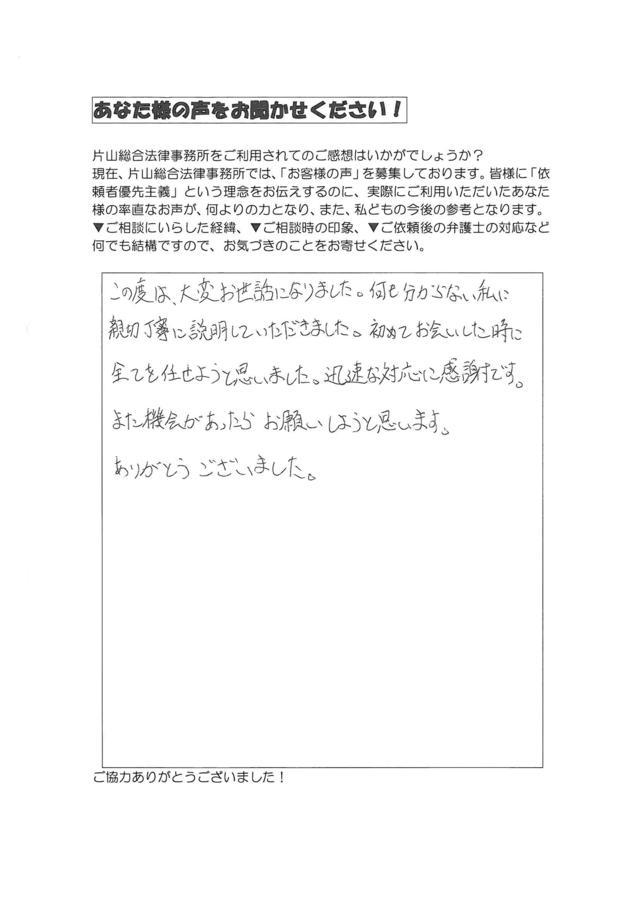 あなた様の声をお聞かせください！
片山総合法律事務所をご利用されてのご感想はいかがでしょうか？
現在、片山総合法律事務所では、「お客様の声」を募集しております。皆様に「依
頼者優先主義」という理念をお伝えするのに、実際にご利用いただいたあなた
様の率直なお声が、何よりの力となり、また、私どもの今後の参考となります。
▼ご相談にいらした経緯、▼ご相談時の印象、▼ご依頼後の弁護士の対応など
何でも結構ですので、お気づきのことをお寄せください。
この度は、大変お世話になりました。何も分からない私に
親切丁寧に説明していただきました。初めてお会いした時に
全てを任せようと思いました。迅速な対応に感謝です。
また機会があったらお願いしようと思います。
ありがとうございました。
ご協力ありがとうございました！